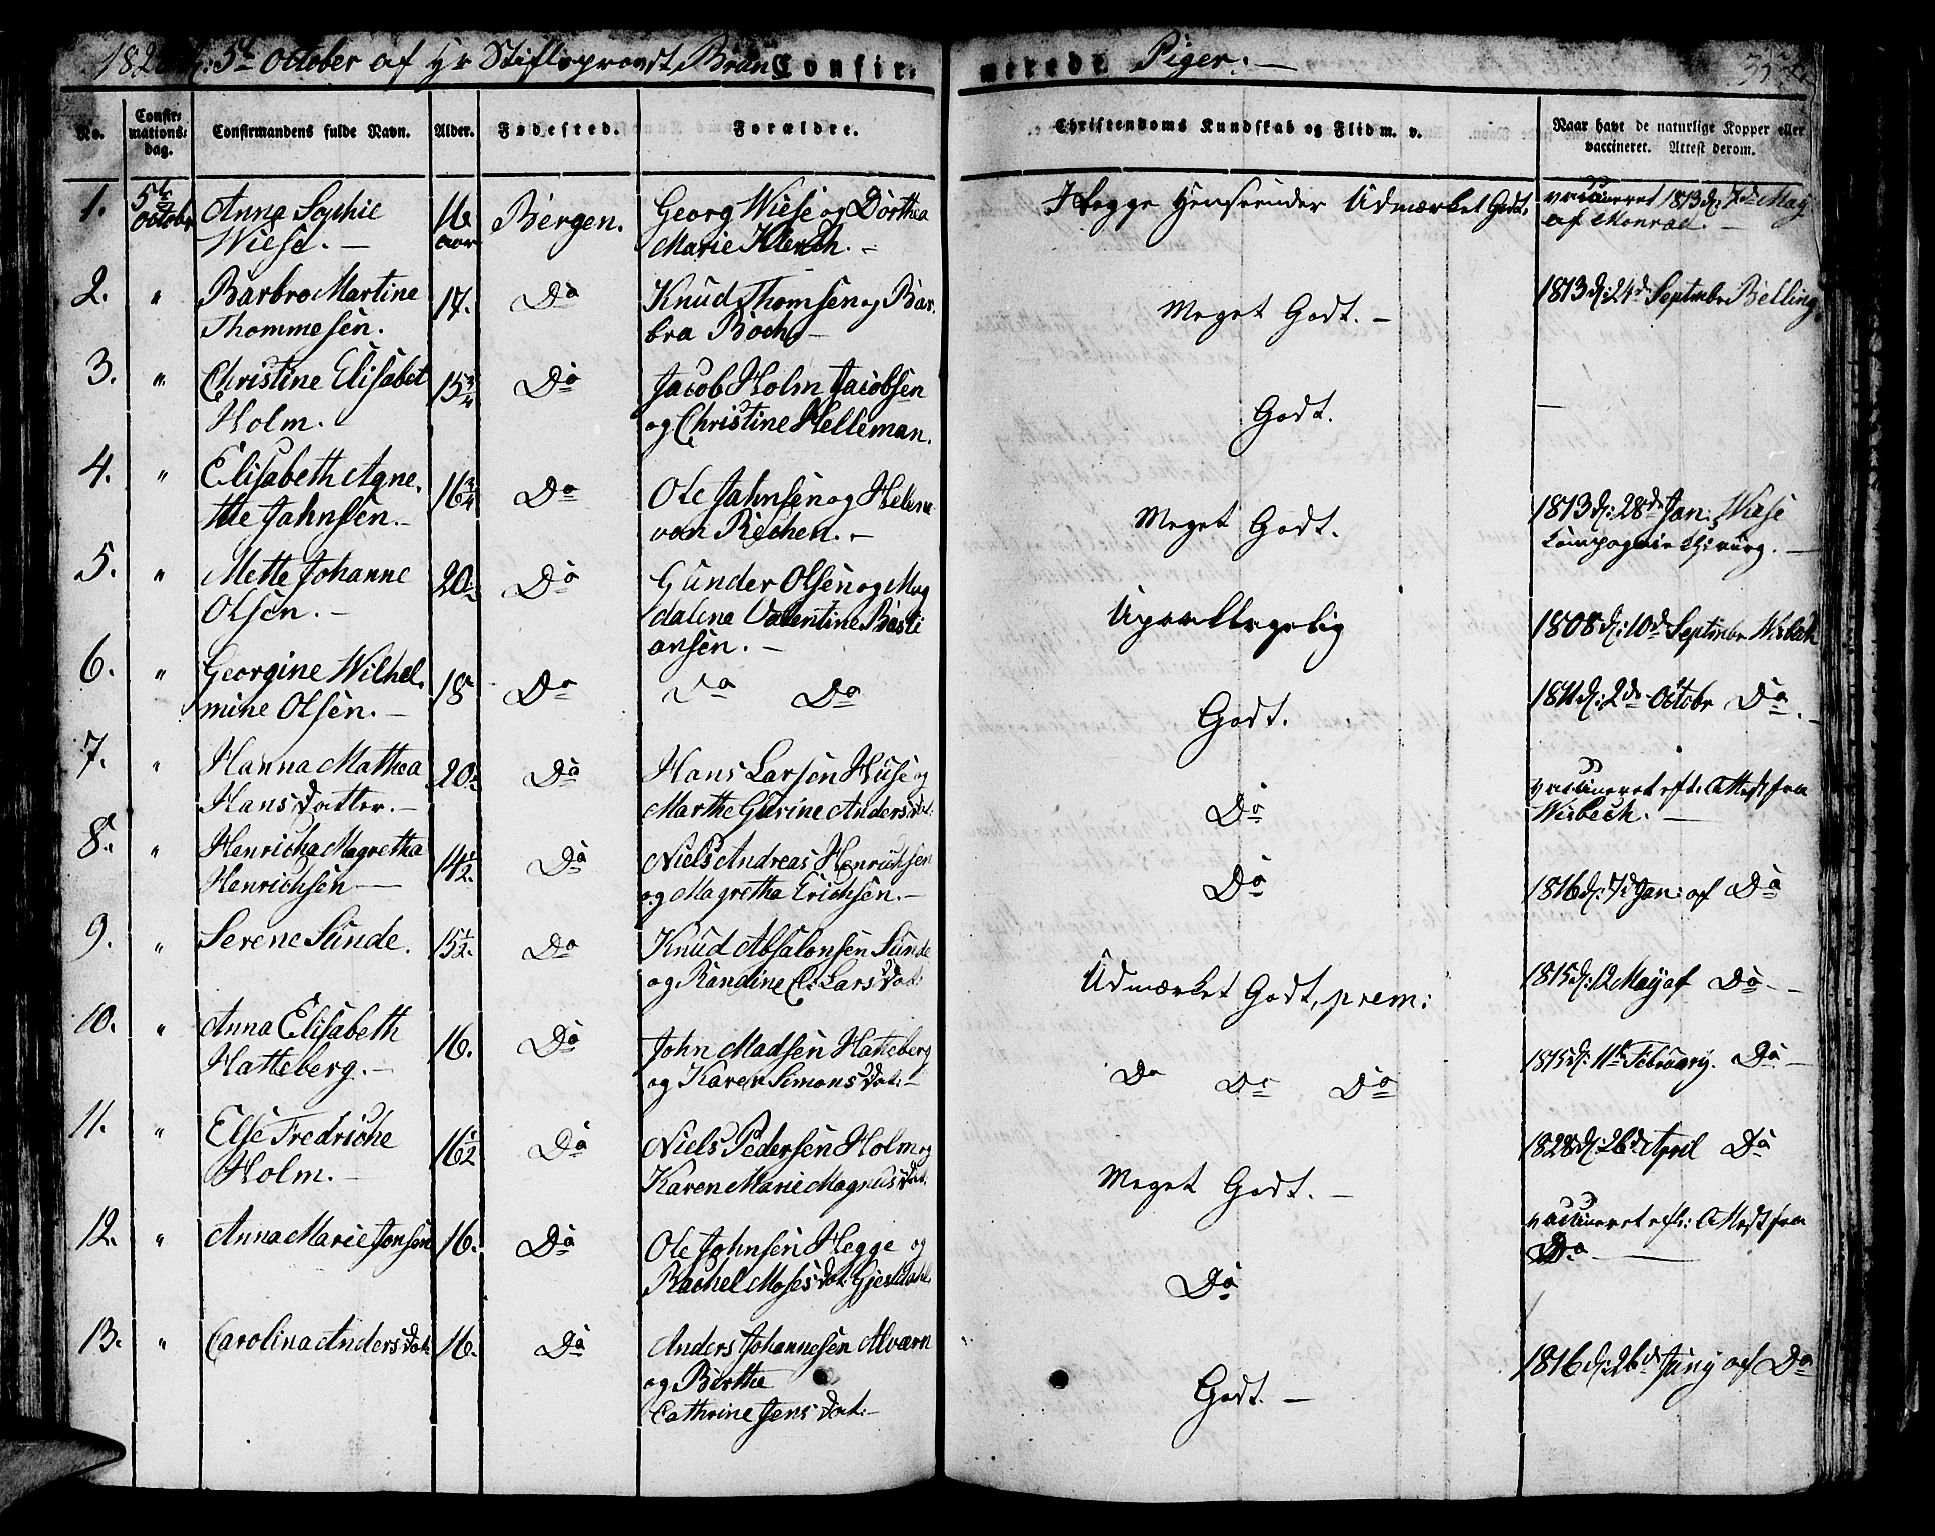 5te October af Hr Stiftsprovst Brun Confir-
merede Piger. —
No.
Confir-
mations-
dag.
Confirmandens fulde Navn.
Alder.
Fødested.
Forældre.
Christendoms Kundskab og Flid m. v.
Naar havt de naturlige Kopper eller
vaccineret. Attest derom.
1. 5te October Anna Sophie 16 Bergen. Georg Wiese og Dorthea
Wiese. — aar Marie
I begge Henseender Udmærket Godt.
vaccineret 1813 d: 7de May
af Monrad. —
2. " Barbro Martine 17. Do Knud Thomsen og Bar-
Thommesen. bra Boch —
Meget Godt. —
1813 d: 24de Septmbr Belling
3. " Christine Elisabet 15 3/4 Do Jacob Holm Jacobsen
Holm. og Christine Helleman.
Godt.
—
4. " Elisabeth Agne- 16 3/4 Do Ole Jahnsen og Helena
the Jahnsen. — von Rechen. —
Meget Godt.
1813 d: 28de Jan: Wiese
Compagnie Chirurg. —
5. " Mette Johanne 20. Do Gunder Olsen og Mag
Olsen. — dalene Valentine Basti
ansen. —
Upaaklagelig
1808 d: 10de Septmbr Wisbech
6. " Georgine Wilhel- 18 Do Do Do
mine Olsen. —
Godt.
1811 d: 2de Octobr Do. —
7. " Hanna Mathea 20. Do Hans Larsen Huse og
Hansdatter. — Marthe Gurine Andersdat:
Do
vaccineret eft: Attest fra
Wisbech. —
8. " Henricha Magretha 14 1/2. Do Niels Andreas Henrichsen
Henrichsen — og Magretha Erichsen. —
Do
1816 d: 7de Jan: af Do
9. " Serene Sunde. 15 1/2. Do Knud Absalonsen Sunde
og Randine E: Larsdat:
Udmærket Godt, prem:
1815 d: 12 May af Do —
10. " Anna Elisabeth 16. Do John Madsen Hatteberg
Hatteberg. — og Karen Simonsdat: —
Do Do Do
1815 d: 11te February. Do —
11. " Else Fredriche 16 1/2 Do Niels Pedersen Holm og
Holm. — Karen Marie Magnusdat.
Meget Godt. —
1828 d: 26de April Do
12. " Anna Marie Jonsen 16. Do Ole Johnsen Hegge og
Rachel Mosesdat: Gjesdahl.
Do
vaccineret efter: Attest fra
Do. —
13. " Carolina Andersdat. 16. Do Anders Johannesen Alværn
og Birthe
Cathrine Jensdat: —
Godt. —
1816 d: 26de Juny af Do